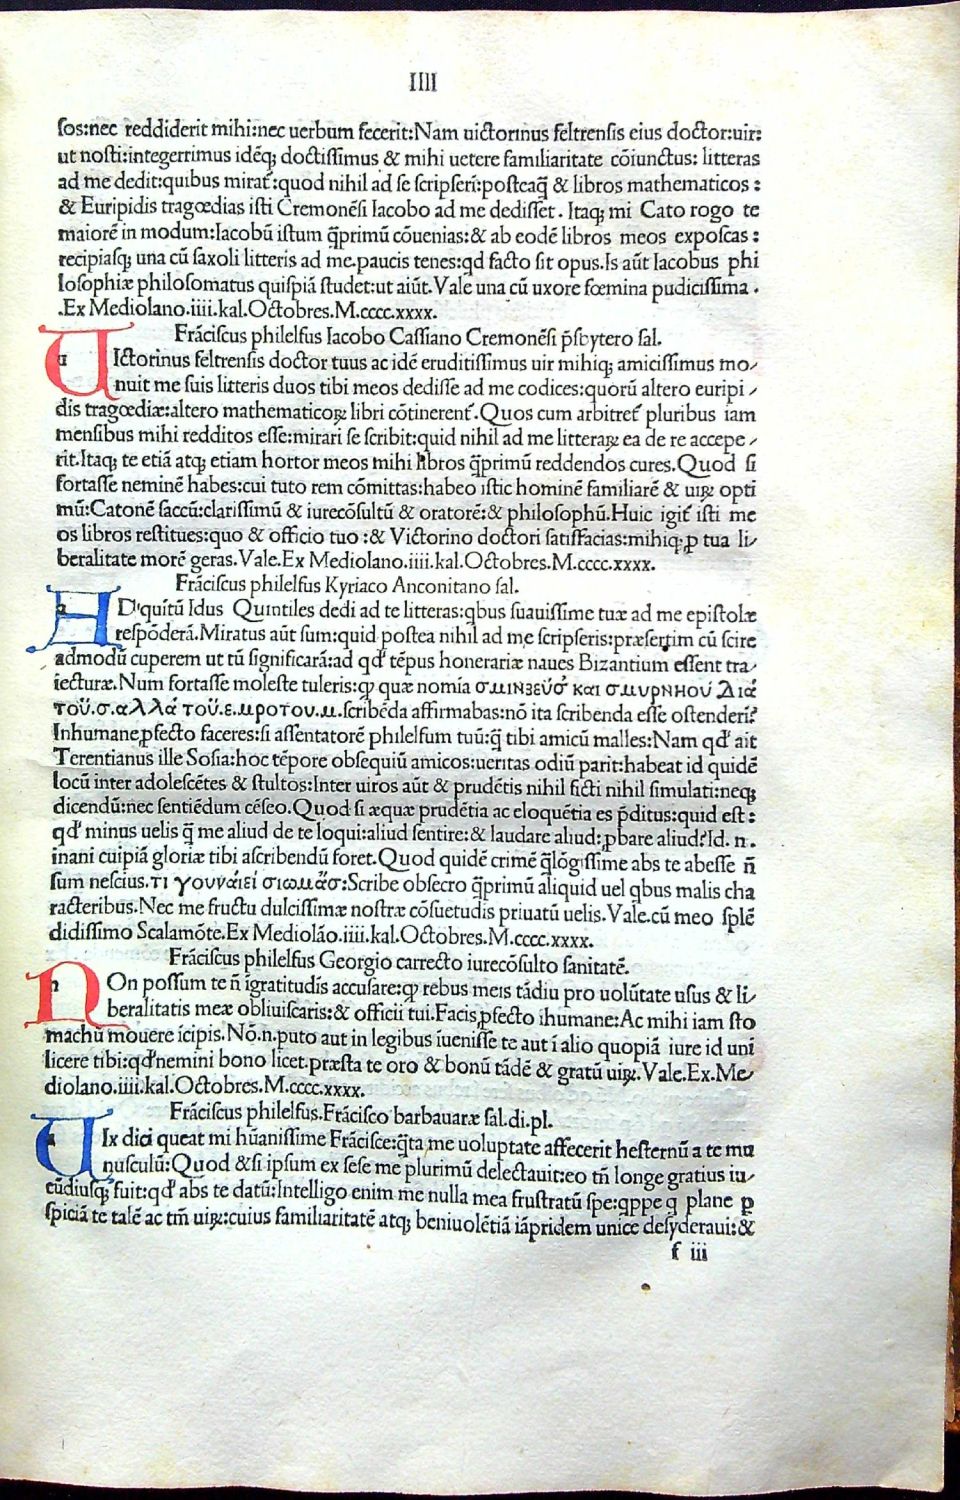 IIII
ſos:nec reddiderit mihi:nec uerbum fecerit:Nam uictorinus feltrenſis eius doctor:uir:
ut noſti:integerrimus idēq; doctiſſimus & mihi uetere familiaritate cōiunctus: litteras
ad me dedit:quibus mirat᷑:quod nihil ad ſe ſcripſerī:poſteaq̄ & libros mathematicos :
& Euripidis tragœdias iſti Cremonēſi Iacobo ad me dediſſet. Itaq; mi Cato rogo te
maiorē in modum:Iacobū iſtum q̄primū cōuenias:& ab eodē libros meos expoſcas :
recipiaſq; una cū ſaxoli litteris ad me.paucis tenes:qd facto ſit opus.Is aūt Iacobus phi
loſophiæ philoſomatus quiſpiā ſtudet:ut aiūt.Vale una cū uxore fœmina pudiciſſima .
.Ex Mediolano.iiii.kal.Octobres.M.cccc.xxxx.
Frāciſcus philelfus Iacobo Caſſiano Cremonēſi p̄ſbytero ſal.
uIctorinus feltrenſis doctor tuus ac idē eruditiſſimus uir mihiq; amiciſſimus mo/
nuit me ſuis litteris duos tibi meos dediſſe ad me codices:quorū altero euripi /
dis tragœdiæ:altero mathematicoꝝ libri cōtinerent᷑.Quos cum arbitret᷑ pluribus iam
menſibus mihi redditos eſſe:mirari ſe ſcribit:quid nihil ad me litteraꝝ ea de re accepe /
rit.Itaq; te etiā atq; etiam hortor meos mihi libros q̄primū reddendos cures.Quod ſi
fortaſſe neminē habes:cui tuto rem cōmittas:habeo iſtic hominē familiarē & uiꝝ opti
mū:Catonē ſaccū:clariſſimū & iurecōſultū & oratorē:& philoſophū.Huic igit᷑ iſti me
os libros reſtitues:quo & officio tuo :& Victorino doctori ſatiſfacias:mihiq;ꝓ tua li/
beralitate morē geras.Vale.Ex Mediolano.iiii.kal.Octobres.M.cccc.xxxx.
Frāciſcus philelfus Kyriaco Anconitano ſal.
aD quītū Idus Quintiles dedi ad te litteras:qbus ſuauiſſime tuæ ad me epiſtolæ
reſpōderā.Miratus aūt ſum:quid poſtea nihil ad me ſcripſeris:præſertim cū ſcire
admodū cuperem ut tū ſignificarā:ad qđ tēpus honerariæ naues Bizantium eſſent tra/
iecturæ.Num fortaſſe moleſte tuleris:ꝙ quæ nomīa σμινζεύσ καὶ σμυρνηου Διά
τοῦ.σ.αλλά τοῦ.ε.μροτου.μ.ſcribēda affirmabas:nō ita ſcribenda eſſe oſtenderī?
Inhumane ꝓfecto faceres:ſi aſſentatorē philelfum tuū:q̄ tibi amicū malles:Nam qđ ait
Terentianus ille Soſia:hoc tēpore obſequiū amicos:ueritas odiū parit:habeat id quidē
locū inter adoleſcētes & ſtultos:Inter uiros aūt & prudētis nihil ficti nihil ſimulati:neq;
dicendū:nec ſentiēdum cēſeo.Quod ſi æquæ prudētia ac eloquētia es p̄ditus:quid eſt:
qđ minus uelis q̄ me aliud de te loqui:aliud ſentire:& laudare aliud:ꝓbare aliud?Id. n.
inani cuipiā gloriæ tibi aſcribendū foret.Quod quidē crimē q̄lōgiſſime abs te abeſſe n̄
ſum neſcius.τι γουνάιεί σιωμᾶσ:Scribe obſecro q̄primū aliquid uel qbus malis cha
racteribus.Nec me fructu dulciſſimæ noſtræ cōſuetudis priuatū uelis.Vale.cū meo ſplē
didiſſimo Scalamōte.Ex Mediolāo.iiii.kal.Octobres.M.cccc.xxxx.
Frāciſcus philelfus Georgio carrecto iurecōſulto ſanitatē.
nOn poſſum te n̄ īgratitudīs accuſare:ꝙ rebus meis tādiu pro uolūtate uſus & li/
beralitatis meæ obliuiſcaris:& officii tui.Facis ꝓfecto ihumane:Ac mihi iam ſto
machū mouere īcipis.Nō.n.puto aut in legibus īueniſſe te aut ī alio quopiā iure id uni
licere tibi:qđ nemini bono licet.præſta te oro & bonū tādē & gratū uiꝝ.Vale.Ex.Me/
diolano.iiii.kal.Octobres.M.cccc.xxxx.
Frāciſcus philelfus.Frāciſco barbauaræ ſal.di.pl.
uIx dici queat mi hūaniſſime Frāciſce:q̄ta me uoluptate affecerit heſternū a te mu
nuſculū:Quod &ſi ipſum ex ſeſe me plurimū delectauit:eo tn̄ longe gratius iu/
cūdiuſq; fuit:qđ abs te datū:Intelligo enim me nulla mea fruſtratū ſpe:qppe q plane ꝑ
ſpiciā te talē ac tm̄ uiꝝ:cuius familiaritatē atq; beniuolētiā iāpridem unice deſyderaui:&
f iii